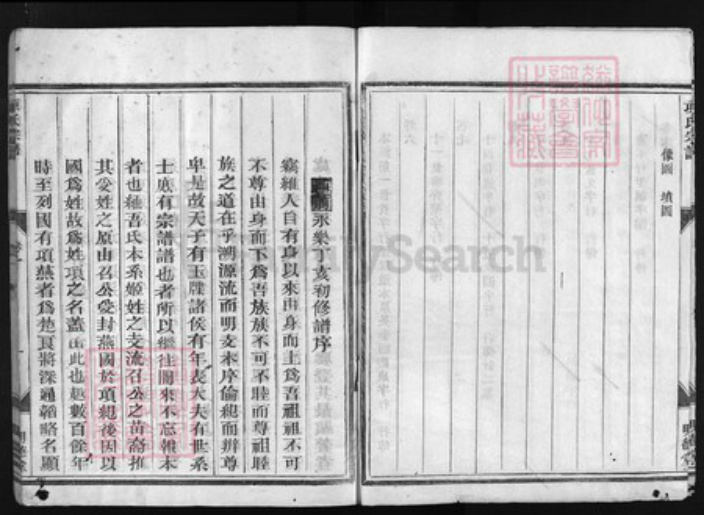 項氏宗譜
像圖 墳圖
永樂丁亥初修譜序
竊維人自有身以來由身而上為吾祖祖不可
不尊由身而下為吾族族不可不睦而尊祖睦
族之道在乎溯源流而明支本序倫總而辨尊
卑是故天子有玉牒諸侯有年表大夫有世系
士庶有宗譜譜也者所以繼往開來不忘報本
者也緬吾氏本系姬姓之支流召公之苗裔推
其受姓之原由召公受封燕國於項總後因以
國為姓故為姓項之名蓋由此也越數百餘年
時至列國有項燕者為楚良將深通韜略名顯
FamilySearch